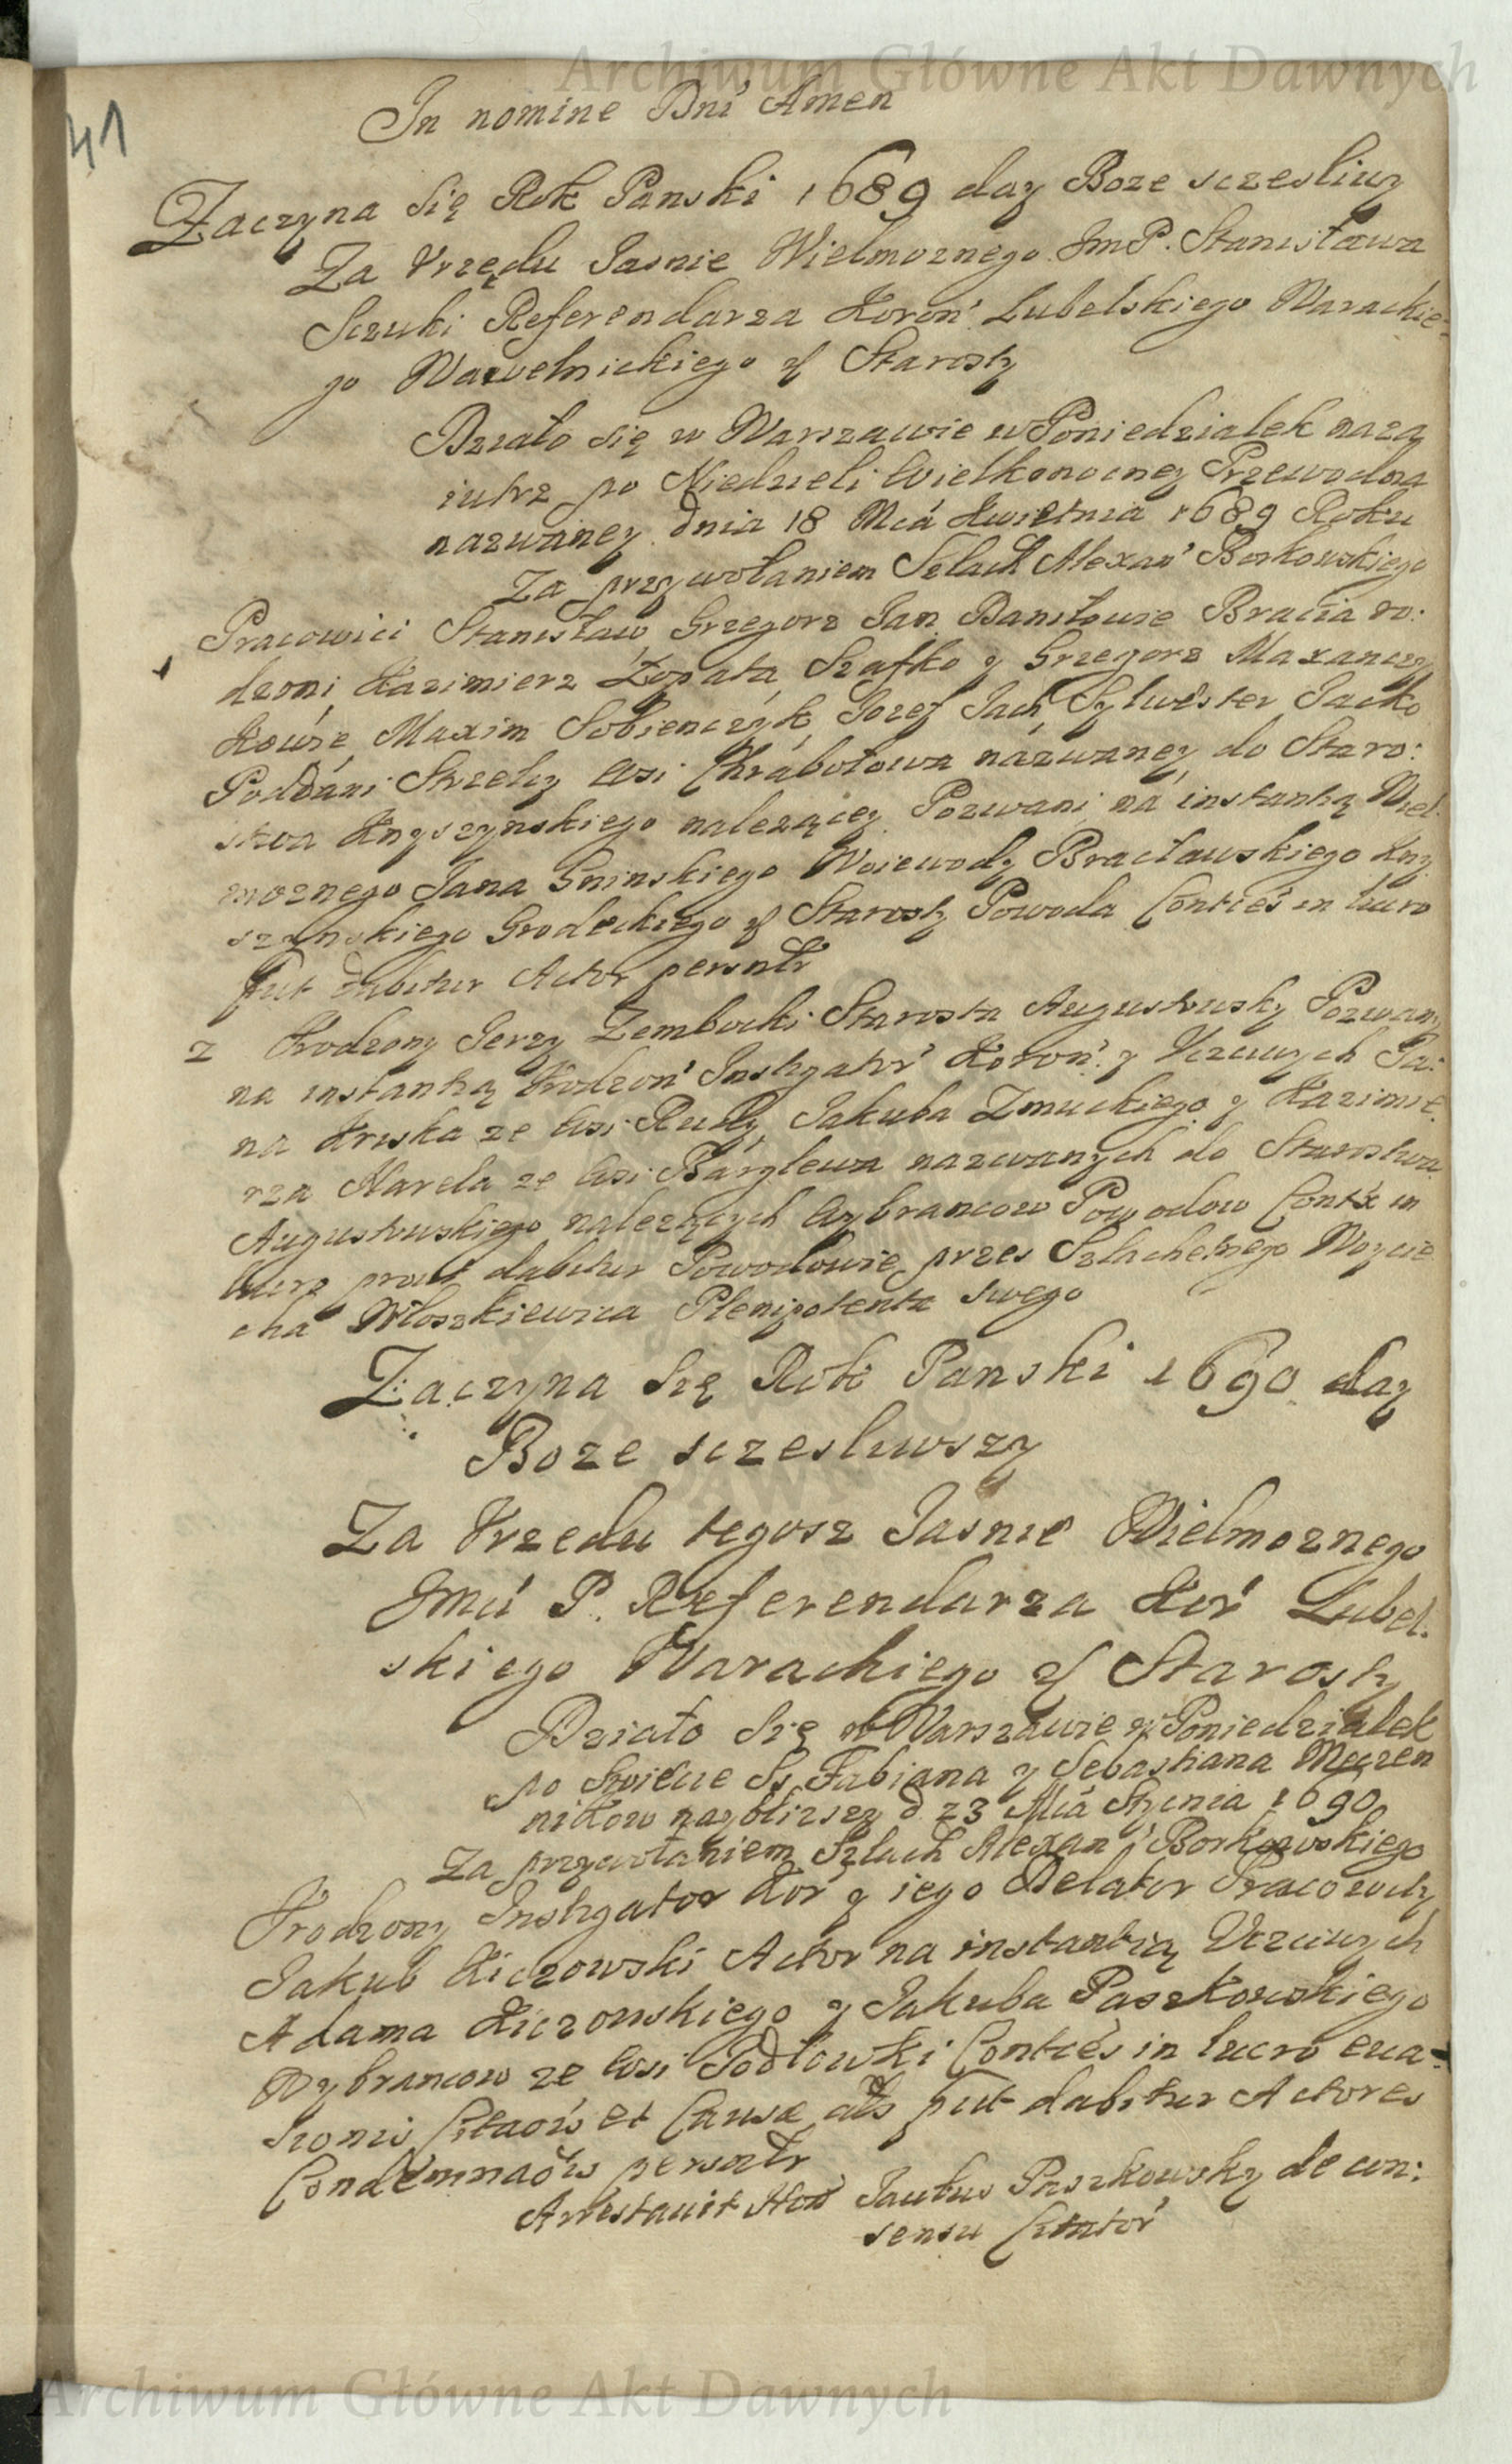 Archiwum Główne Akt Dawnych
41
In nomine Dni Amen
Zaczyna się Rok Panski 1689 day Boze sczesliwy
Za Vrzędu Jasnie Wielmoznego JmP. Stanisława
Sczuki Referendarza Koron Lubelskiego Warackie-
go Wąwelnickiego & Starosty
Działo się w Warszawie w Poniedziałek nazą
iutrz po Niedzieli Wielkonocney Przewodną
nazwaney dnia 18 Mca Kwietnia 1689 Roku
Za przywołaniem Szlach Alexan Borkowskiego
1 Pracowici Stanisław, Grzegorz Jan Daniłowie Bracia ro:
dzoni, Kazimierz Łopata Szafko y Grzegorz Maxanczy
kowie Maxim Sobienczyk, Jozef Jach, Sylwester Jacko
Poddani Strzelcy wsi Chrabołowa nazwaney do Staro:
stwa Knyszynskiego nalezącey Pozwani na instantią Wiel
moznego Jana Gninskiego Woiewody Bracławskiego Kny
szynskiego Grodeckiego & Starosty Powoda Conties in lucro
put dabitur Actor persnlr
2 Vrodzony Jerzy Zembocki Starosta Augustowsky Pozwany
na instantią Vrodzon Instigator Koron y Vczciwych Ja:
na Kruska ze wsi Rudy, Jakuba Zmuckiego y Kazimie
rza Narela ze wsi Barglewa nazwanych do Starostwa
Augustowskiego nalezących Wybrancow Powodow Contx in
lucro prout dabitur Powodowie przes Szlachetnego Woycie
cha Wloszkiewica Plenipotenta swego
Zaczyna się Rok Panski 1690 day
Boze sczesliwszy
Za Vrzedu tegosz Jasnie Wielmoznego
Jmci P. Referendarza Kor Lubel.
skiego Warackiego & Starosty
Działo się w Warszawie w Poniedziałek
po Swiecie Ss Fabiana y Sebastiana Meczen
nikow nayblizszy d 23 Mca Stycnia 1690
Za przywołaniem Szlach Alexan Borkowskiego
Vrodzony Instigator Kor y iego Delator Pracowity
Jakub Kiczowski Actor na instantią Vczciwych
Adama Kiczowskiego y Jakuba Paszkowskiego
Wybrancow ze wsi Podłowki Conties in lucro eua-
sionis Citaois et Causæ als put dabitur Actores
Condemnaois persnlr
Arrestauit Hon Jacobus Paszkowsky de con:
sensu Citator
Archiwum Główne Akt Dawnych